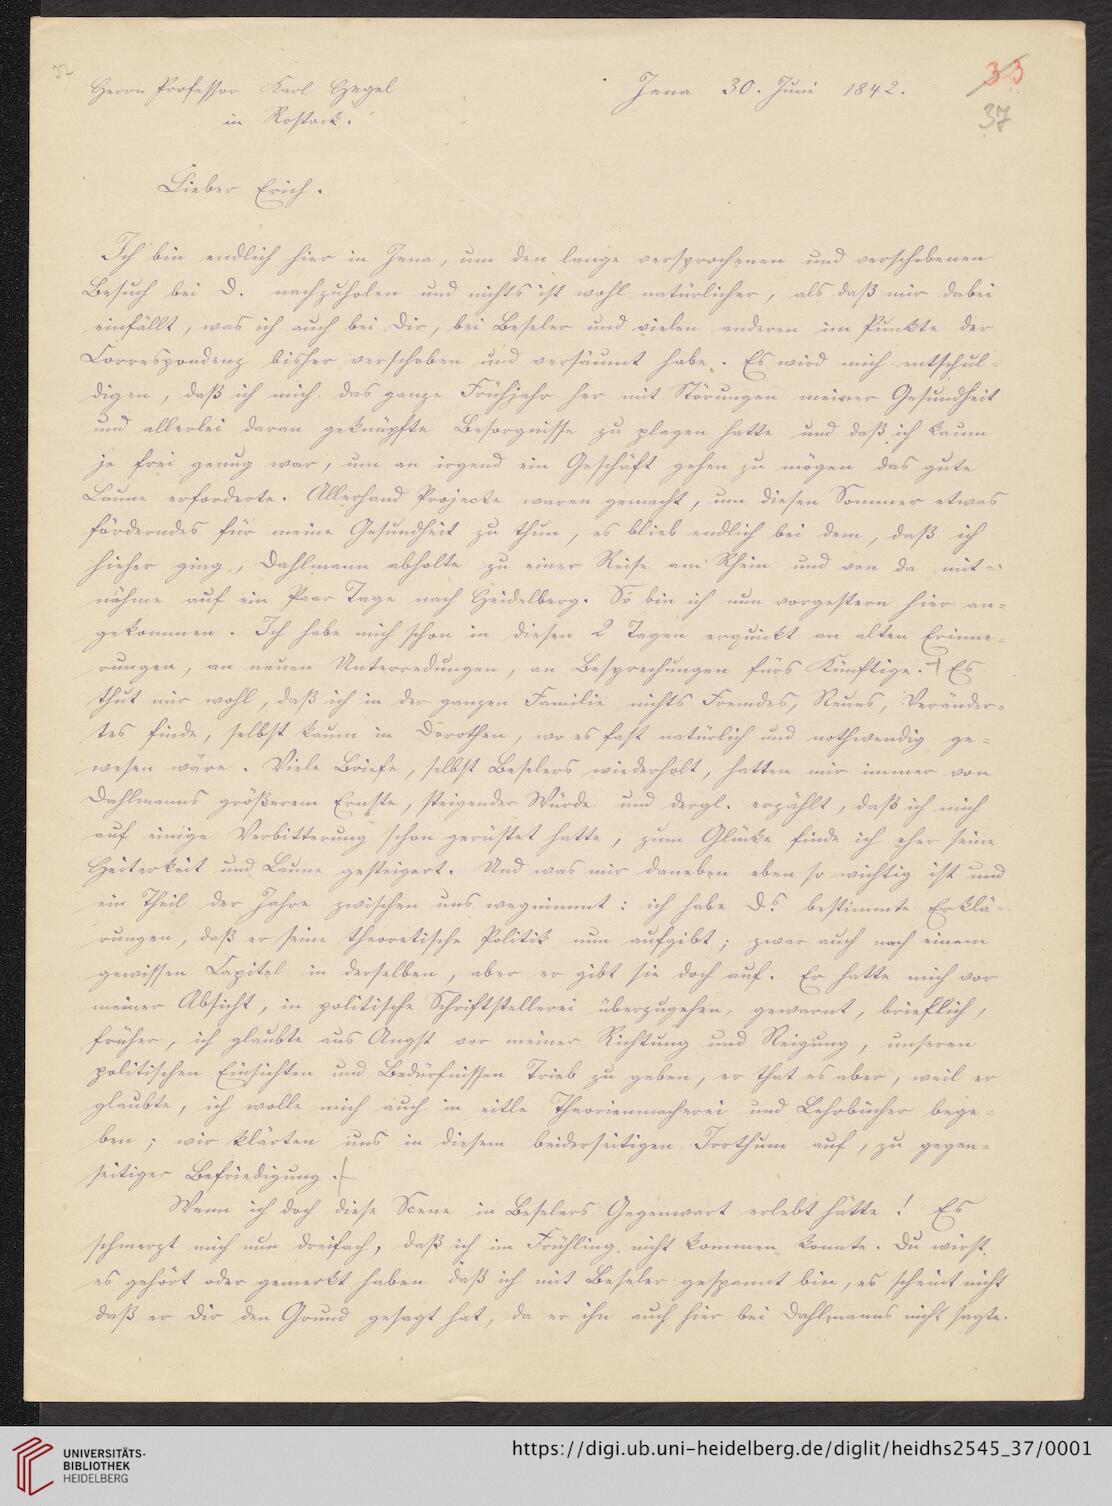 32
33
37
Herrn Professor Karl Hegel
in Rostock.
Jena 30. Juni 1842.
Lieber Erich.
Ich bin endlich hier in Jena, um den lange versprochenen und verschobenen
Besuch bei D. nachzuholen und nichts ist wohl natürlicher, als daß mir dabei
einfällt, was ich auch bei Dir, bei Beseler und vielen anderen im Punkte der
Correspondenz bisher verschoben und versäumt habe. Es wird mich entschul-
digen, daß ich mich das ganze Frühjahr her mit Störungen meiner Gesundheit
und allerlei daran geknüpfte Besorgnisse zu plagen hatte und daß ich kaum
je frei genug war, um an irgend ein Geschäft gehen zu mögen das gute
Laune erforderte. Allerhand Projecte waren gemacht, um diesen Sommer etwas
förderndes für meine Gesundheit zu thun, es blieb endlich bei dem, daß ich
hieher ging, Dahlmann abholte zu einer Reise am Rhein und von da mit-
nähme auf ein Paar Tage nach Heidelberg. So bin ich nun vorgestern hier an-
gekommen. Ich habe mich schon in diesen 2 Tagen erquickt an alten Erinne-
rungen, an neuen Unterredungen, an Besprechungen fürs Künftige. Es
thut mir wohl, daß ich in der ganzen Familie nichts Fremdes, Neues, Veränder-
tes finde, selbst kaum in Dorothen, wo es fast natürlich und nothwendig ge-
wesen wäre. Viele Briefe, selbst Beselers wiederholt, hatten mir immer von
Dahlmanns größerem Ernste, steigender Würde und dergl. erzählt, daß ich mich
auf einige Verbitterung schon gerüstet hatte, zum Glücke finde ich eher seine
Heiterkeit und Laune gesteigert. Und was mir daneben eben so wichtig ist und
ein Theil der Jahre zwischen uns wegnimmt: ich habe D.s bestimmte Erklä-
rungen, daß er seine theoretische Politik nun aufgibt; zwar auch nach einem
gewissen Capitel in derselben, aber er gibt sie doch auf. Er hatte mich vor
meiner Absicht, in politische Schriftstellerei überzugehen, gewarnt, brieflich,
früher, ich glaubte aus Angst vor meiner Richtung und Neigung, unseren
politischen Einsichten und Bedürfnissen Trieb zu geben, er that es aber, weil er
glaubte, ich wolle mich auch in eitle Theorienmacherei und Lehrbücher bege-
ben; wir klärten uns in diesem beiderseitigen Irrthum auf, zu gegen-
seitiger Befriedigung.
Wenn ich doch diese Scene in Beselers Gegenwart erlebt hätte! Es
schmerzt mich nun dreifach, daß ich im Frühling nicht kommen konnte. Du wirst
es gehört oder gemerkt haben daß ich mit Beseler gespannt bin, es scheint nicht
daß er Dir den Grund gesagt hat, da er ihn auch hier bei Dahlmanns nicht sagte.
UNIVERSITÄTS-
BIBLIOTHEK
HEIDELBERG
https://digi.ub.uni-heidelberg.de/diglit/heidhs2545_37/0001